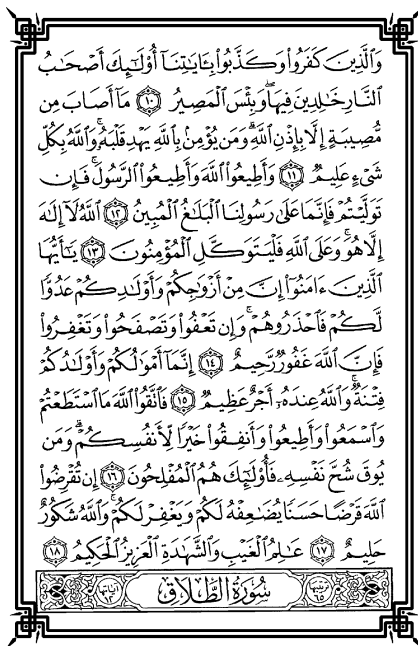 وَٱلَّذِينَ كَفَرُوا۟ وَكَذَّبُوا۟ بِـَٔايَٰتِنَآ أُو۟لَٰٓئِكَ أَصْحَٰبُ
ٱلنَّارِ خَٰلِدِينَ فِيهَا ۖ وَبِئْسَ ٱلْمَصِيرُ ١٠ مَآ أَصَابَ مِن
مُّصِيبَةٍ إِلَّا بِإِذْنِ ٱللَّهِ ۗ وَمَن يُؤْمِنۢ بِٱللَّهِ يَهْدِ قَلْبَهُۥ ۚ وَٱللَّهُ بِكُلِّ
شَىْءٍ عَلِيمٌ ١١ وَأَطِيعُوا۟ ٱللَّهَ وَأَطِيعُوا۟ ٱلرَّسُولَ ۚ فَإِن
تَوَلَّيْتُمْ فَإِنَّمَا عَلَىٰ رَسُولِنَا ٱلْبَلَٰغُ ٱلْمُبِينُ ١٢ ٱللَّهُ لَآ إِلَٰهَ
إِلَّا هُوَ ۚ وَعَلَى ٱللَّهِ فَلْيَتَوَكَّلِ ٱلْمُؤْمِنُونَ ١٣ يَٰٓأَيُّهَا
ٱلَّذِينَ ءَامَنُوٓا۟ إِنَّ مِنْ أَزْوَٰجِكُمْ وَأَوْلَٰدِكُمْ عَدُوًّا
لَّكُمْ فَٱحْذَرُوهُمْ ۚ وَإِن تَعْفُوا۟ وَتَصْفَحُوا۟ وَتَغْفِرُوا۟
فَإِنَّ ٱللَّهَ غَفُورٌ رَّحِيمٌ ١٤ إِنَّمَآ أَمْوَٰلُكُمْ وَأَوْلَٰدُكُمْ
فِتْنَةٌ ۚ وَٱللَّهُ عِندَهُۥٓ أَجْرٌ عَظِيمٌ ١٥ فَٱتَّقُوا۟ ٱللَّهَ مَا ٱسْتَطَعْتُمْ
وَٱسْمَعُوا۟ وَأَطِيعُوا۟ وَأَنفِقُوا۟ خَيْرًا لِّأَنفُسِكُمْ ۗ وَمَن
يُوقَ شُحَّ نَفْسِهِۦ فَأُو۟لَٰٓئِكَ هُمُ ٱلْمُفْلِحُونَ ١٦ إِن تُقْرِضُوا۟
ٱللَّهَ قَرْضًا حَسَنًا يُضَٰعِفْهُ لَكُمْ وَيَغْفِرْ لَكُمْ ۚ وَٱللَّهُ شَكُورٌ
حَلِيمٌ ١٧ عَٰلِمُ ٱلْغَيْبِ وَٱلشَّهَٰدَةِ ٱلْعَزِيزُ ٱلْحَكِيمُ ١٨
ترتيبها ٦٥ سُورَةُ ٱلطَّلَاقِ آياتها